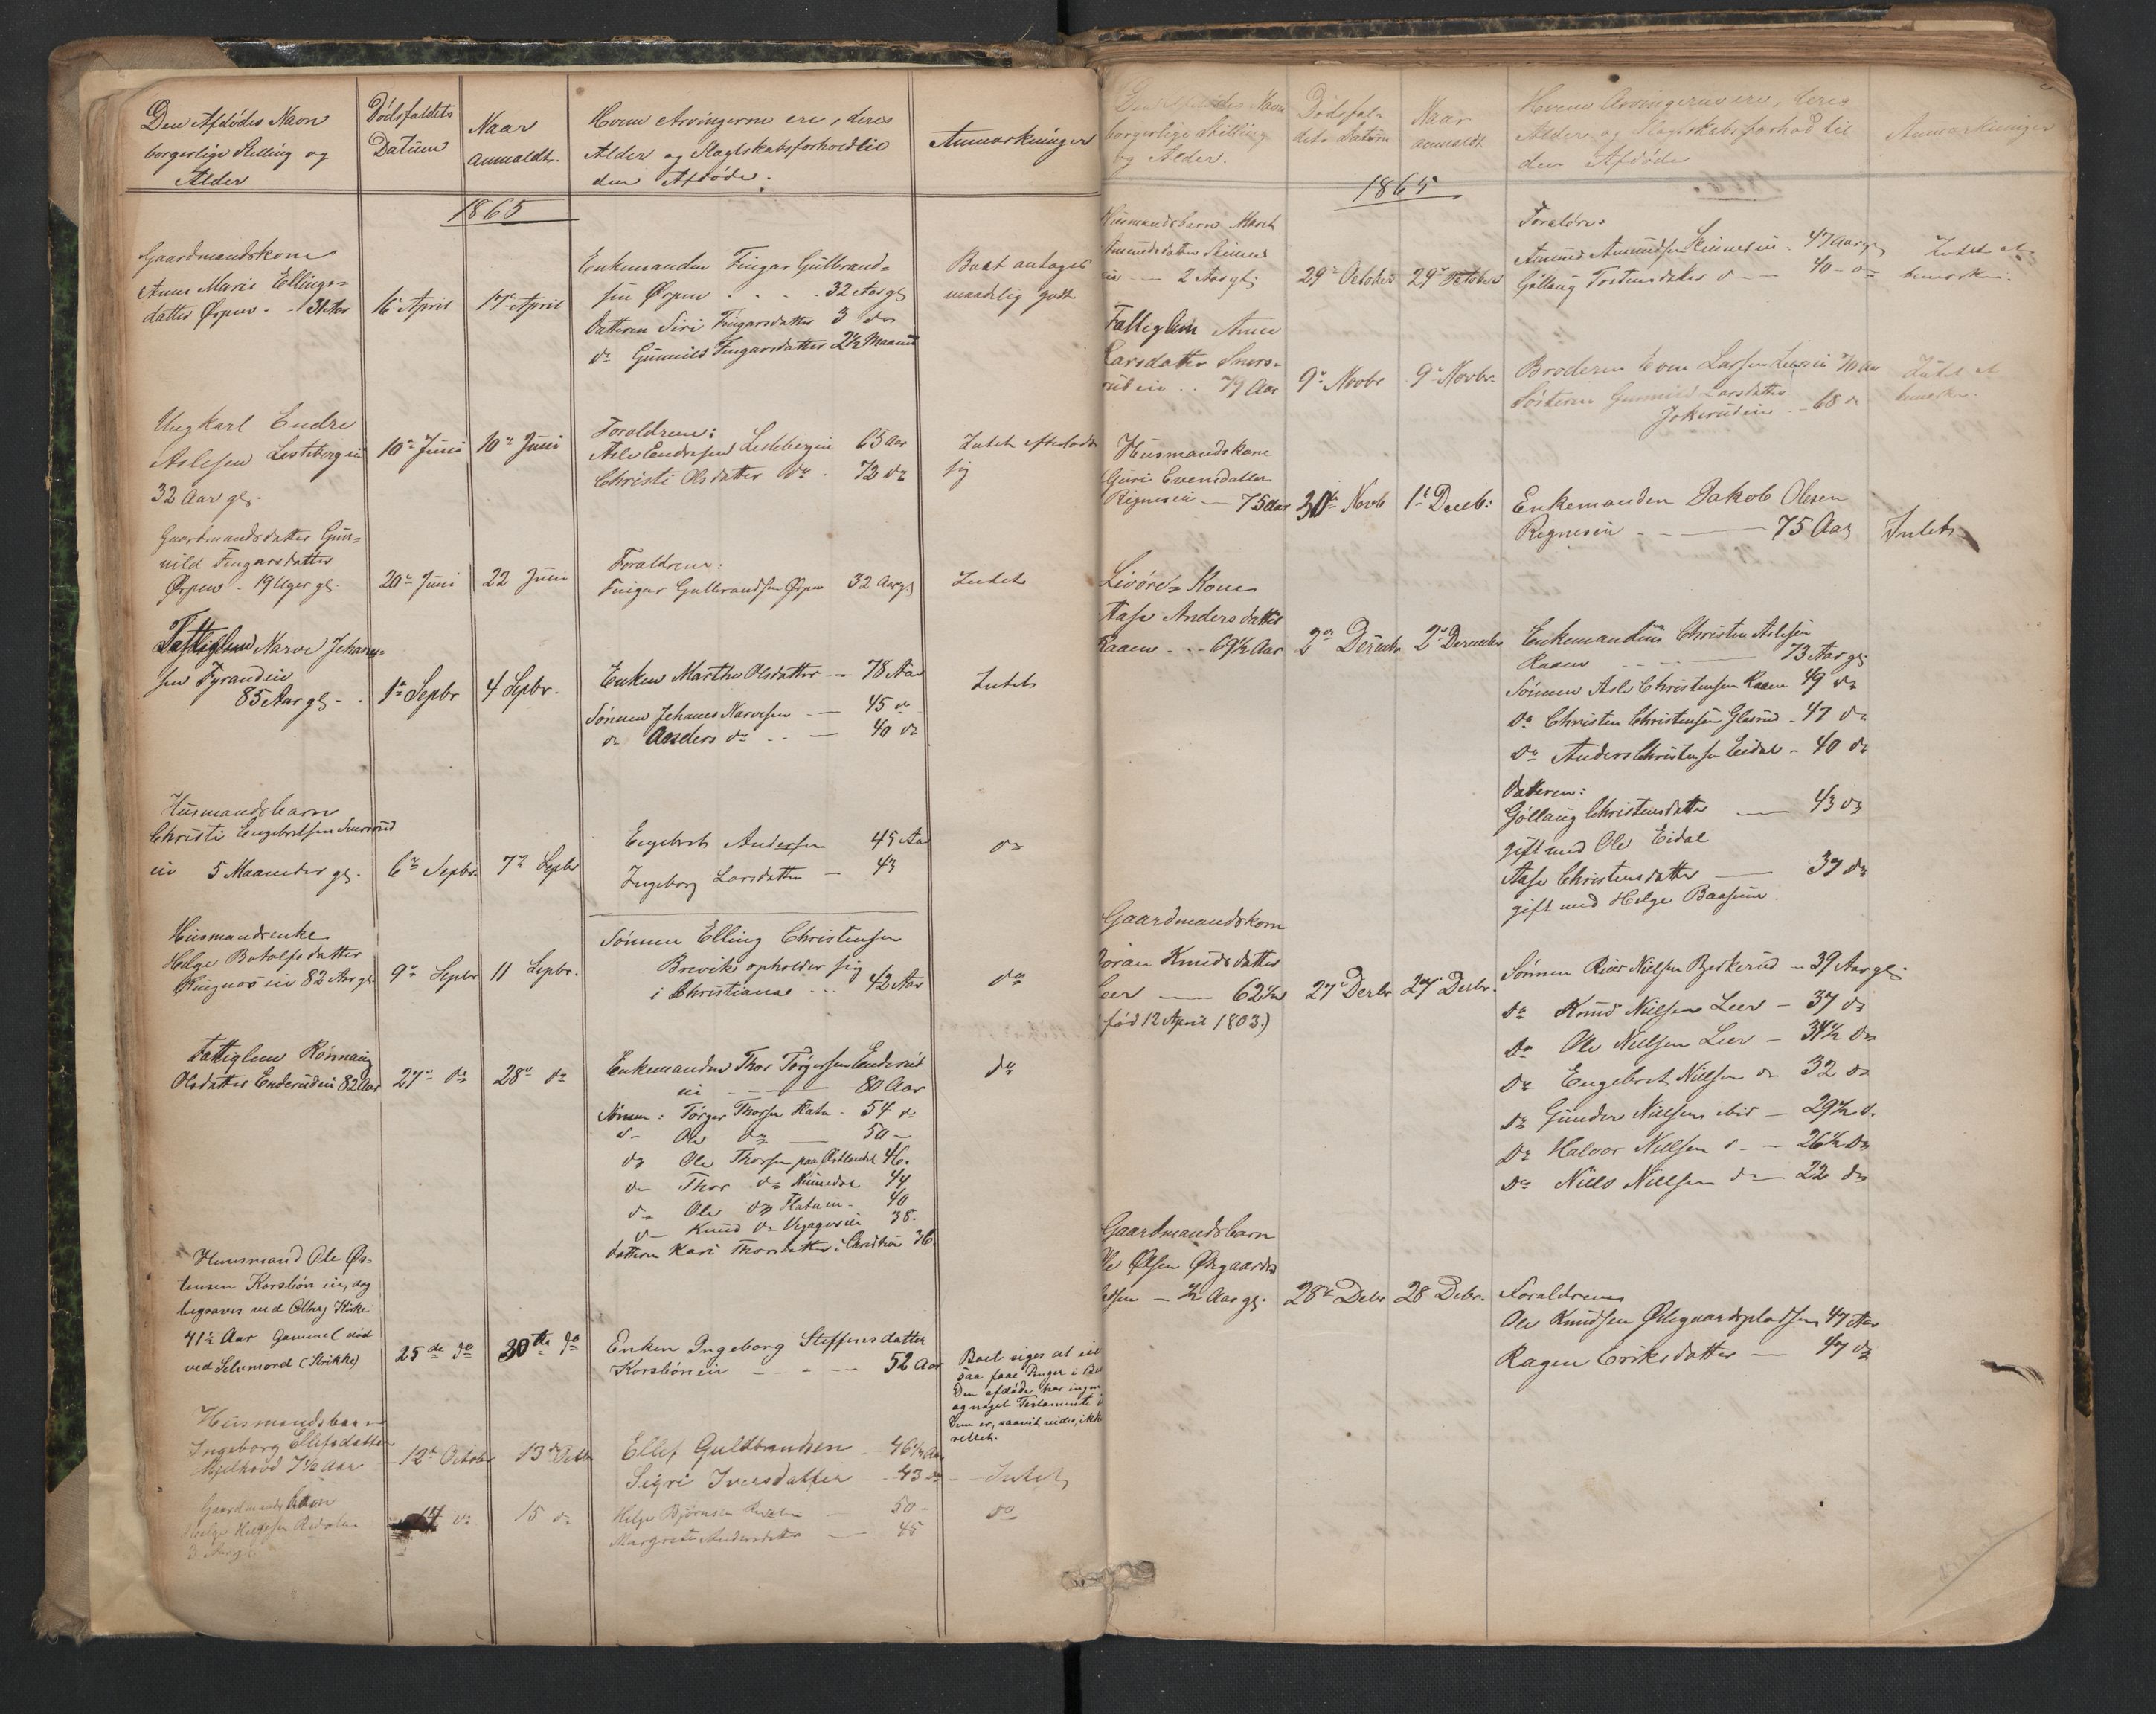 Den Afdödes Navn
borgerlige Stilling og
Alder
Dödsfaldets
Datum
Naar
anmeldt.
Hvem Arvingerne ere, deres
Alder og Slagtskabsforhold til
den Afdöde.
Anmærkninger
1865
Gaardmandskone
Anne Marie Ellings-
datter Ørpen - 31 Aar
16de April
17de April
Enkemanden Fingar Gulbrand-
sen Ørpen . . . 32 Aar gl.
Datteren Siri Fingarsdatter 3 do
do Gunnild Fingarsdatter 2½ Maaned
Boet antages
maadelig godt
Ungkarl Endre
Aslesen Lesteberg ei
32 Aar gl.
10de Juni
10de Juni
Foraldrene:
Asle Endresen Lesteberg ei 65 Aar
Christi Olsdatter do . 72 do
Intet efterladt
sig
Gaardmandsdatter Gun-
nild Fingarsdatter
Ørpen . 19 Uger gl.
20de Juni
22 Juni
Foraldrene:
Fingar Gulbrandsen Ørpen 32 Aar gl
Intet
Fattiglem Narve Johanne-
sen Tyrandeie
85 Aar gl. -
1de Sepbr
4 Sepbr.
Enken Marthe Olsdatter — 78 Aar
Sönnen Johanes Narvesen . — 45 do
do Anders do . . — 40 do
Intet
Husmandsbarn
Christi Engebretsen Snersrud
eie 5 Maaneder gl.
6de Sepbr.
7de Sepbr
Engebret Andersen 45 Aar
Ingeborg Larsdatter — 43
do
Husmandsenke
Helge Botolfsdatter
Ringnes eie 82 Aar gl.
9de Sepbr
11 Sepbr.
Sönnen Elling Christensen
Brevik opholder sig
i Christiania . . . 42 Aar
do
Fattiglem Rönnaug
Olsdatter Enderudeie 82 Aar
27de do
28de do
Enkemanden Thor Törgersen Enderud
ei — 80 Aar
Sönnen: Törger Thorsen Flata - 54 do
do Ole do — 50 —
do Ole Thorsen paa Østlandet 46.
do Thor do Numedal 44
do Ole do Flatum - 40
do Knud do 38.
datteren Kari Thorsdatter i Christia 36.
do
Huusmand Ole Øs-
tensen Korsbön eie, dog
begraves ved Olberg Kirke
41½ Aar Gammel död
ved Selvmord (Strikke)
25de do
30te do
Enken Ingeborg Steffensdatter
Korsböneie — - — — 52 Aar
Boet siges at eie
saa faae Penge i Bo
Den afdöde har ingen
og noget Testamente
Dem er, saavit vides, ikke
rettet.
Husmandsbarn
Ingeborg Ellefsdatter
Mjelhovd 7½ Aar
12te October
13de Octb
Ellef Guldbrandsen 46½ Aar
Sigri Iversdatter - - 43 do
Intet
Gaardmandsbarn
Helge Helgesen
3 Aar gl.
14 do
15 do
Helge Björnsen 50 -
Margrete Andersdatter — 45
do
Den Afdödes Navn
borgerlige Stilling
og Alder.
Dödsfal-
dets Datum
Naar
anmeldt
Hvem Arvingerne ere, deres
Alder og Slagtskabsforhold til
den Afdöde
Anmærkninger
1865
Husmandsbarn Marit
Amundsdatter
eie — 2 Aar gl;
29de October
29de October
Foraldre
Amund Amundsen 47 Aar gl
Göllaug Tostensdatter do — 40 - do
Intet at
bemerke.
Fattiglem Anne
Larsdatter Sners-
rud eie . . 79 Aar
9de Novbr
9de Novbr.
Broderen Even Larsen 70 Aar
Søsteren Gunnild Larsdatter
Jokerudeie . - 68 do
Intet at
bemerke.
Husmandskone
Guri Evensdatter
Rignes eie — 75 Aar
30te Novb
1te Decb:
Enkemanden Jakob Olesen
Regnes eie . — — 75 Aar
Intet
Livöret. Kone
Aase Anders datter
Raaen . . - 69½ Aar
2den December
2de December
Enkemanden Christen Aslesen
Raaen — 73 Aar gl;
Sönnen Asle Christensen Raaen 49 do
do Christen Christensen Glesrud - 47 do
do Anders Christensen Eidal - 40 do
Datteren:
Göllaug Christensdatter — 43 do
gift med Ole Eidal
Aase Christensdatter — 37 do
gift med Helge Baasum.
Gaardmandskone
Jöran Knudsdatter
Leer — 62½
(född 12 April 1803.)
27de Decbr
27de Decbr.
Sönnen Reier Nielsen Bjerkerud — 39 Aar gl.
do Knud Nielsen Leer — 37 do
do Ole Nielsen Leer — 34½ do
do Engebret Nielsen do 32 do
do Gunder Nielsen ibid — 29½ do
do Halvor Nielsen do — 26½ do
do Niels Nielsen do — 22 do
Gaardmandsbarn
Ole Olsen Ødegaards
latsen — ½ Aar gl.
28de Debr
28 Debr.
Foraldrene
Ole Knudsen Ødegaardsplatsen 47 Aar
Ragne Eriksdatter — 47 do